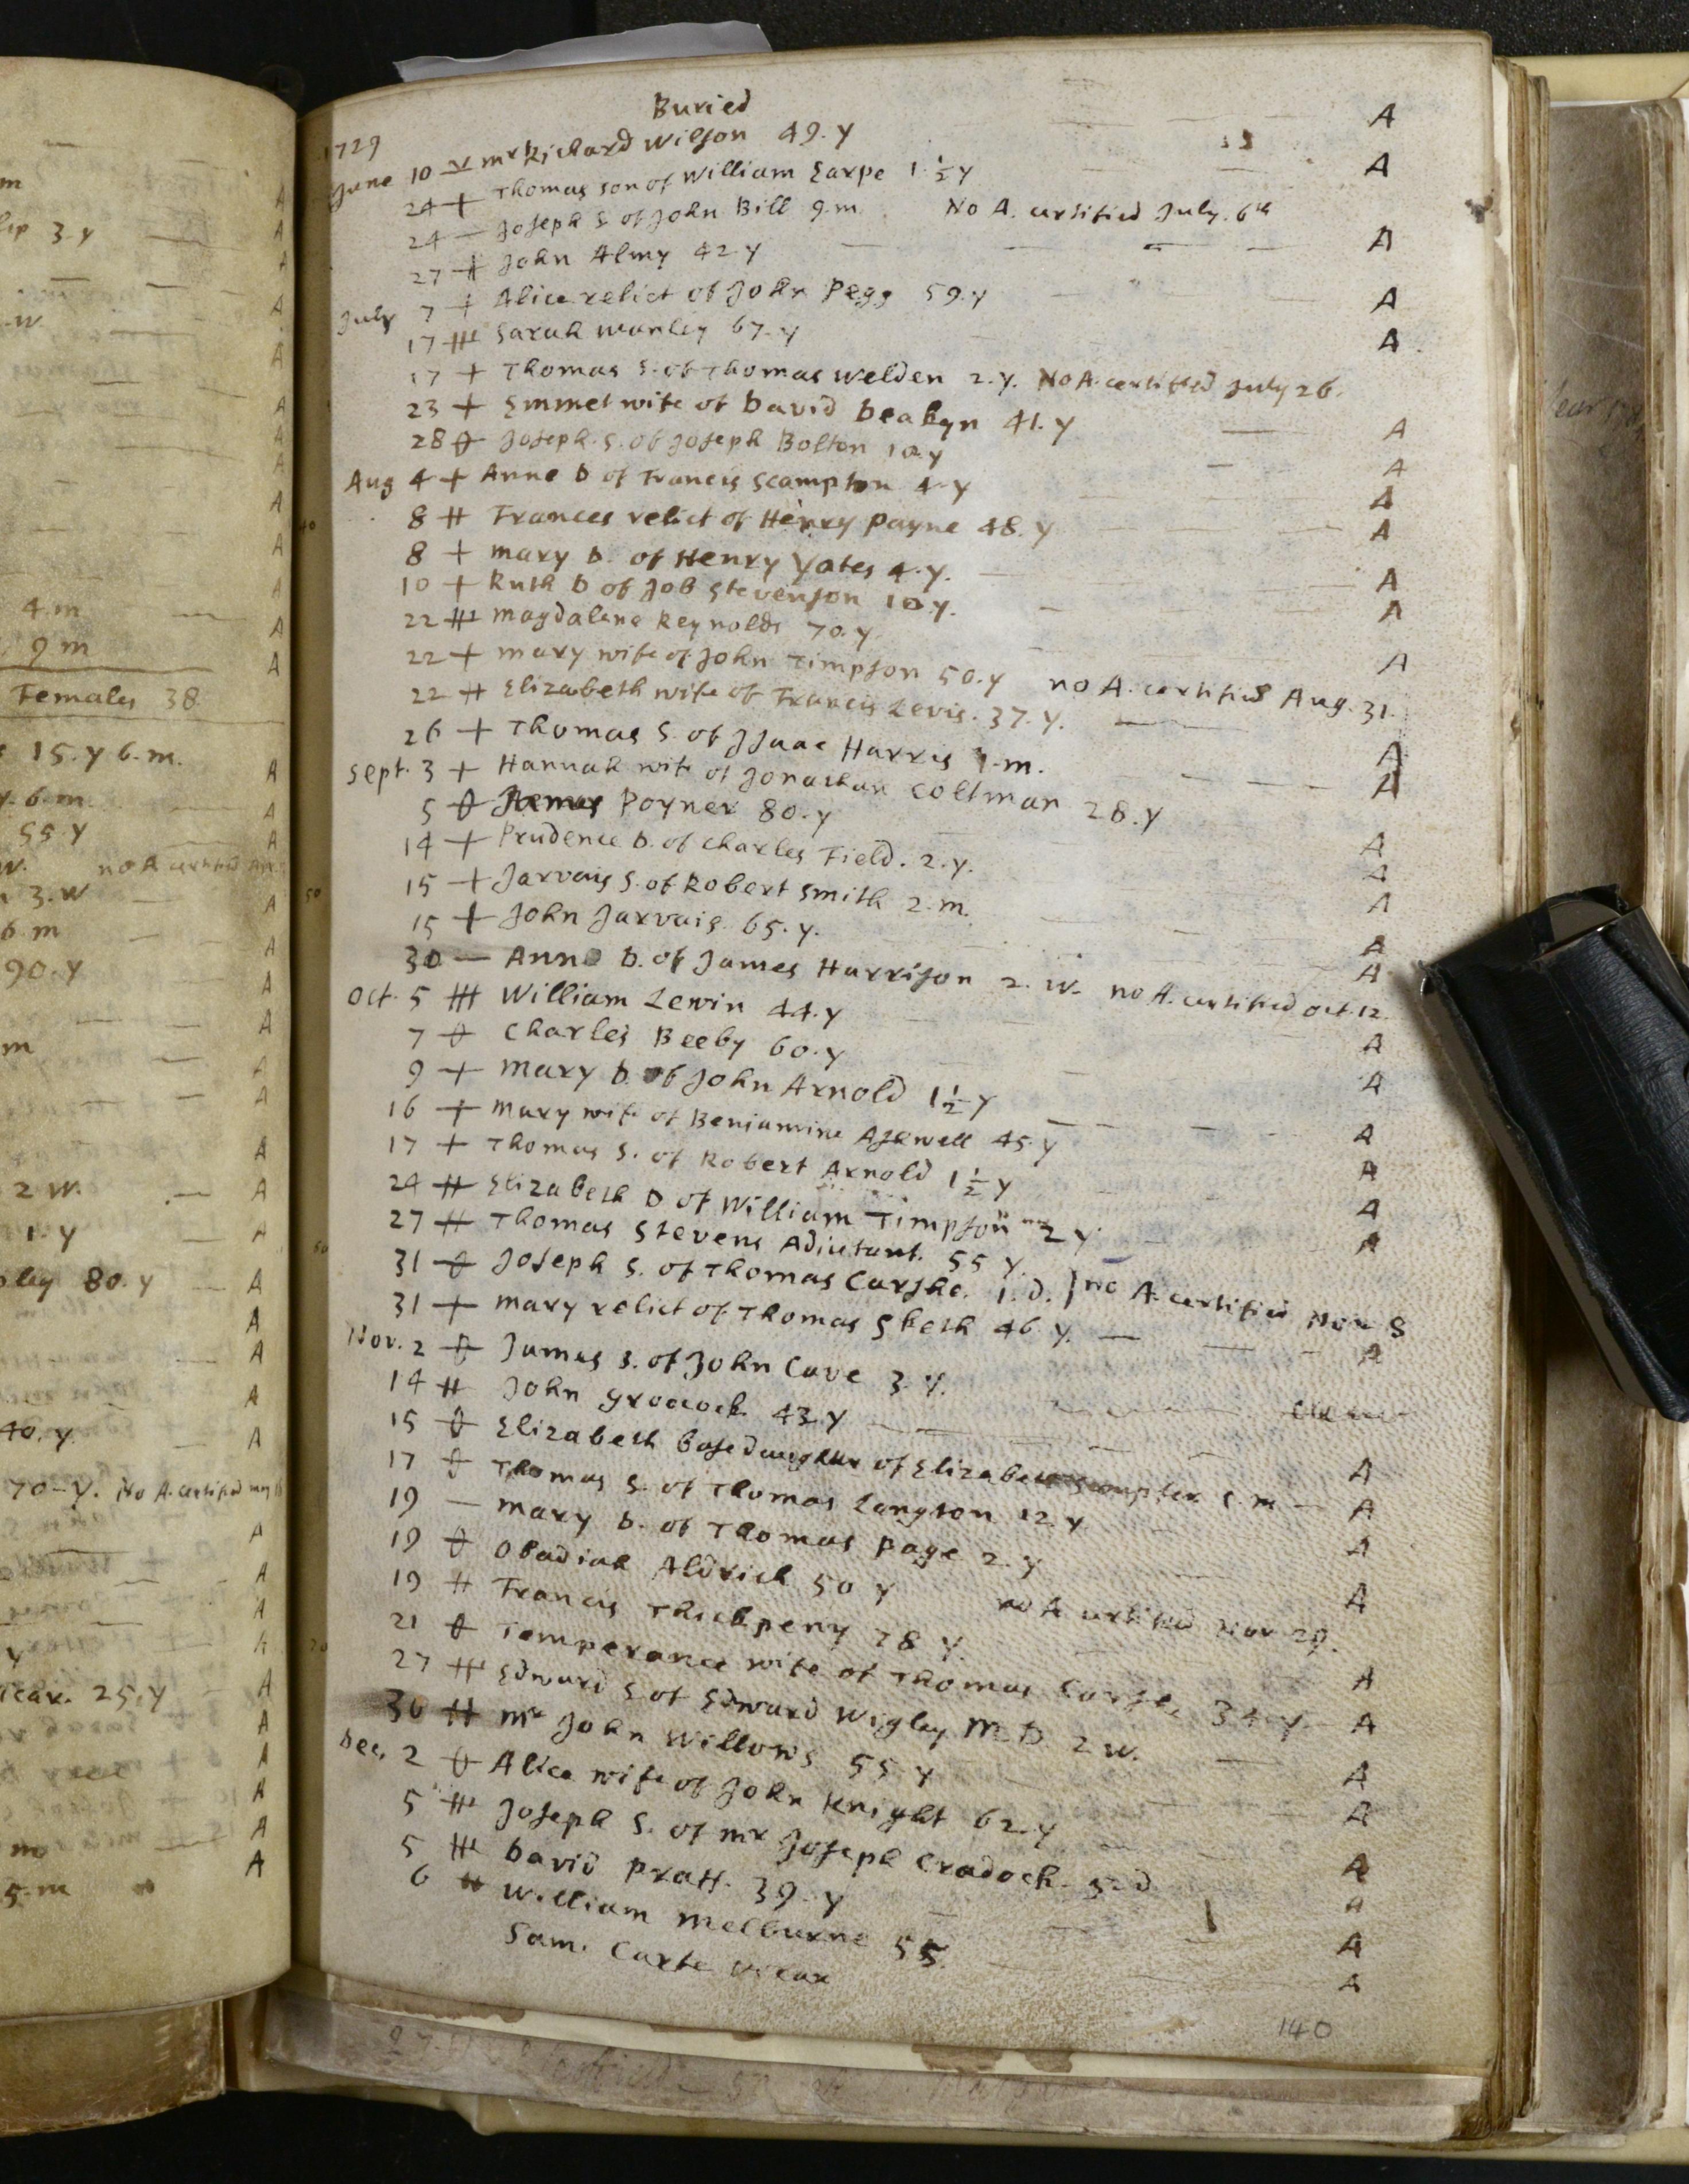 Buried
1729
June 10 mr Richard Wilson 49. y A
24 + Thomas son of William Earpe 1. ½ y A
24 — Joseph S of John Bill 9. m. No A. certified July. 6th
27 + John Almy 42 y A
July 7 + Alice relict of John Pegg 59. y A
17 Sarah Manley 67. y A
17 + Thomas S. of Thomas Welden 2. y. No A. certified July 26.
23 + Emmet wife of David Deakyn 41. y A
28 Joseph. S. of Joseph Bolton 10. y A
Aug 4 + Anne D of Francis Scampton 4. y A
8 Frances relict of Henry Payne 48. y A
8 + Mary D. of Henry Yates 4. y. A
10 + Ruth D of Job Stevenson 10. y. A
22 Magdalene Reynolds 70. y A
22 + Mary wife of John Timpson 50. y no A. certified Aug. 31.
22 Elizabeth wife of Francis Levis. 37. y. A
26 + Thomas S. of Isaac Harris 1. m. A
Sept. 3 + Hannah wife of Jonathan Coltman 28. y A
5 Poyner 80. y A
14 + Prudence D. of Charles Field. 2. y. A
15 + Jarvais S. of Robert Smith 2. m. A
15 + John Jarvais 65. y. A
30 — Anne D. of James Harrison 2. w. no A. certified Oct. 12.
Oct. 5 William Lewin 44. y A
7 Charles Beeby 60. y A
9 + Mary D. of John Arnold 1 ½ y A
16 + Mary wife of Beniamine Ashwell 45. y A
17 + Thomas S. of Robert Arnold 1 ½ y A
24 Elizabeth D of William Timpson 2 y A
27 Thomas Stevens Adiutant. 55 y.
31 Joseph S. of Thomas 1. D. no A. certified Nov 8
31 + Mary relict of Thomas Sketh 46. y. A
Nov. 2 James S. of John Cave 3. y.
14 John Groocock 43. y
15 Elizabeth base daughter of Elizabeth m A
17 Thomas S. of Thomas Langton 12 y A
19 — Mary D. of Thomas Page 2. y A
19 Obadiah Aldrich 50 y A
19 Francis Thickpeny 78 y. no A certified Nov 29.
21 Temperance wife of Thomas 34. y. A
27 Edward S of Edward Wigley M. D. 2 w. A
30 Mr John Willows 55 y A
Dec. 2 Alice wife of John Knight 62 y A
5 Joseph S. of Mr Joseph Cradock. D A
5 David Pratt. 39. y A
6 William Melburne 55. A
Sam. Carte Vicar A
140
m
3. y
w
4. m
9 m
Females 38
15. y 6. m.
6. m
55. y
w. no A certified
3. w
6. m
90. y
m
2 w.
1. y
80. y
40. y
70 – y. No A. certified
25. y
m
5. m